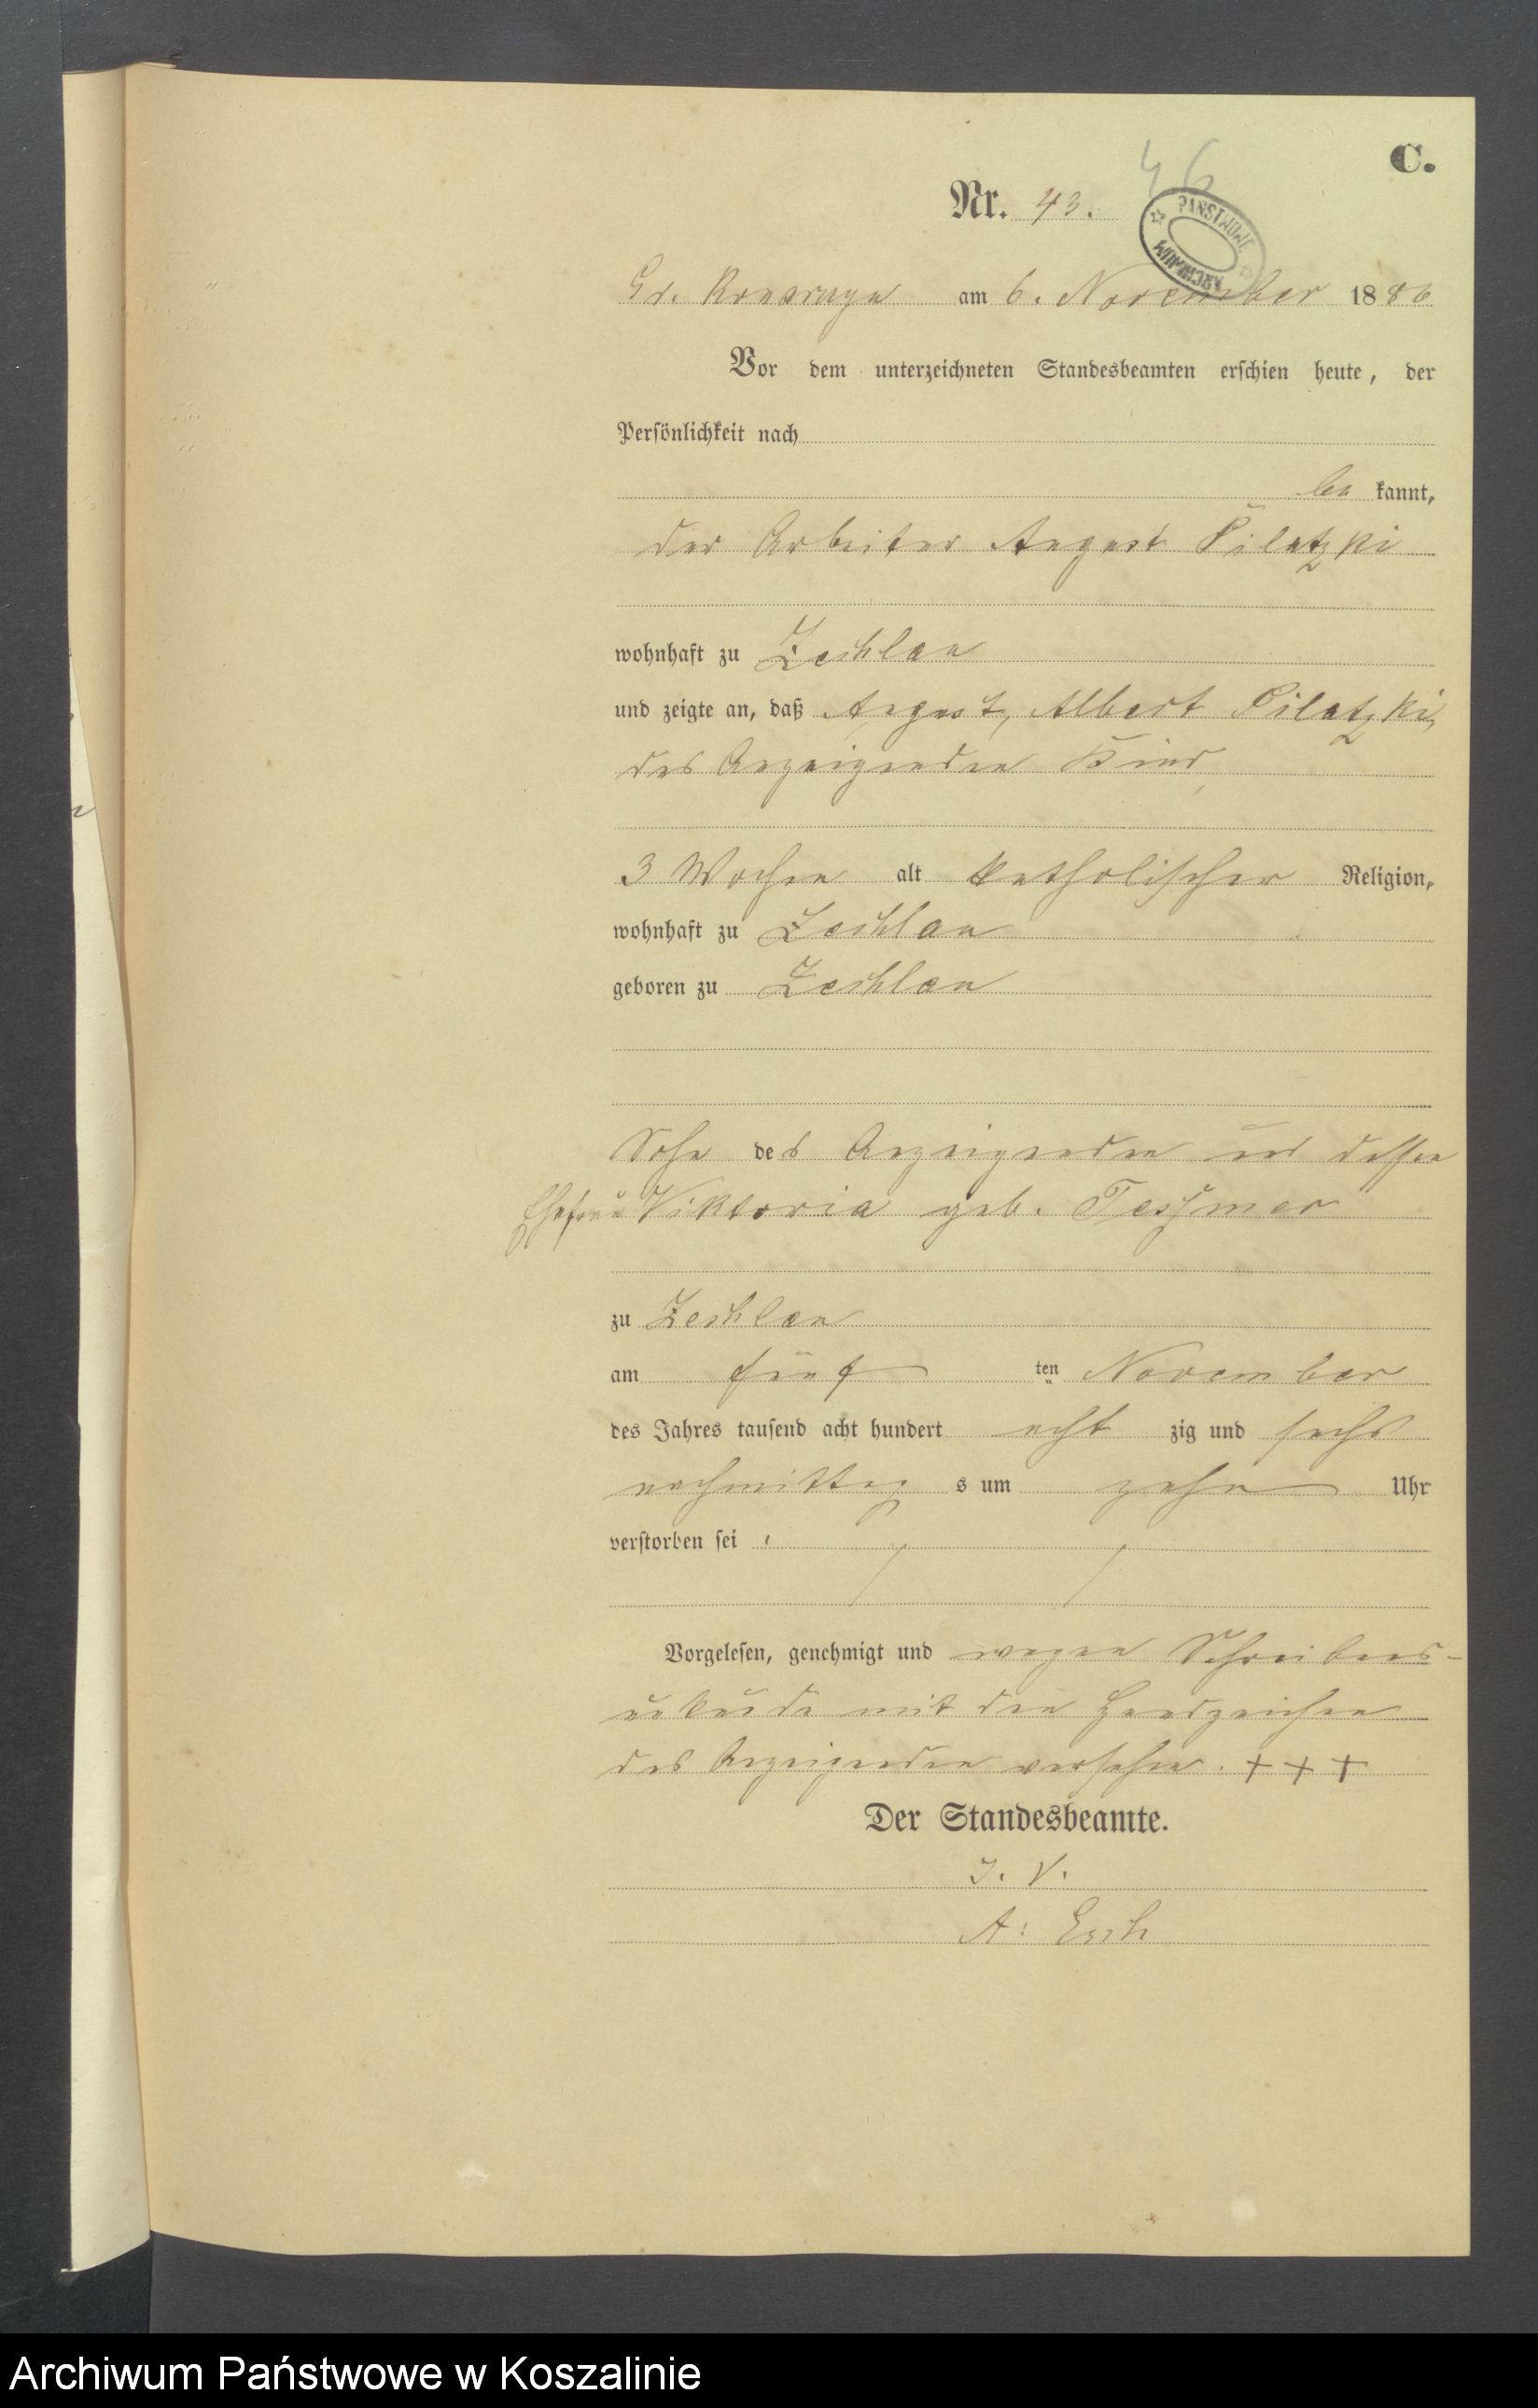 C.
46
Nr. 43.
PAŃSTWOWE ARCHIWUM
Gr. Konarczyn am 6. November 1886
Vor dem unterzeichneten Standesbeamten erschien heute, der
Persönlichkeit nach
be kannt,
der Arbeiter August Pilatzki
wohnhaft zu Zechlau
und zeigte an, daß August, Albert Pilatzki,
des Anzeigenden Kind,
3 Wochen alt katholischer Religion,
wohnhaft zu Zechlau
geboren zu Zechlau
Sohn des Anzeigenden und dessen
Ehefrau Viktoria geb. Teßmer
zu Zechlau
am fünf ten November
des Jahres tausend acht hundert acht zig und sechs
nachmittag s um zehn Uhr
verstorben sei.
Vorgelesen, genehmigt und wegen Schreibens-
unkunde mit den Handzeichen
des Anzeigenden versehen. + + +
Der Standesbeamte.
I. V.
A:
Archiwum Państwowe w Koszalinie